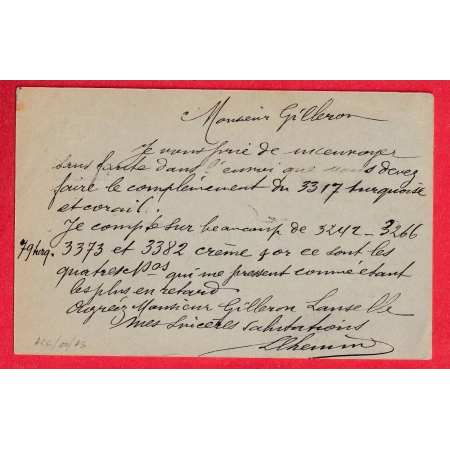 Monsieur Gilleron
Je vous prie de m'envoyer
sans faute dans l'envoi que vous devez
faire le complément du 3317 turquoise
et corail.
Je compte sur beaucoup de 3242 - 3266
3373 et 3382 crème & or ce sont les
quatres Nos qui me pressent comme étant
les plus en retard
Agréez Monsieur Gilleron
mes sincères salutations